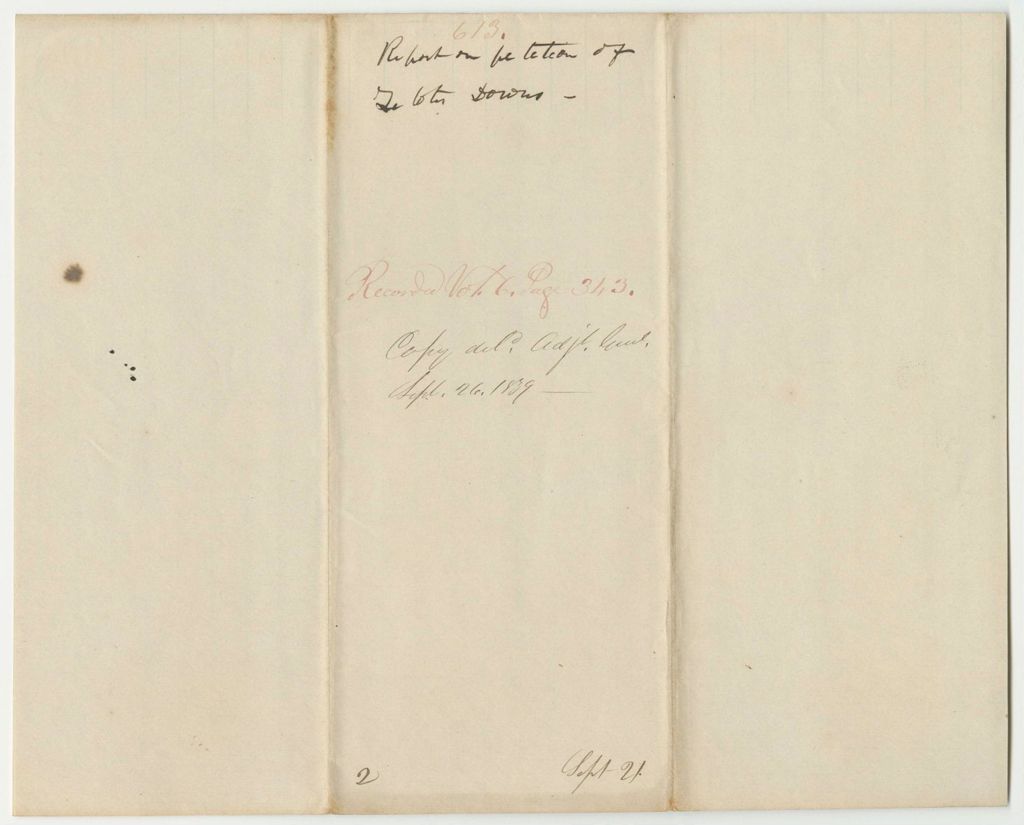 613.
Report on petition of
Zelotes Downs –
Recorded Vol. 6. Page 343.
Copy deld. Adjt. Genl.
Sept. 26. 1839 —
2
Sept 21